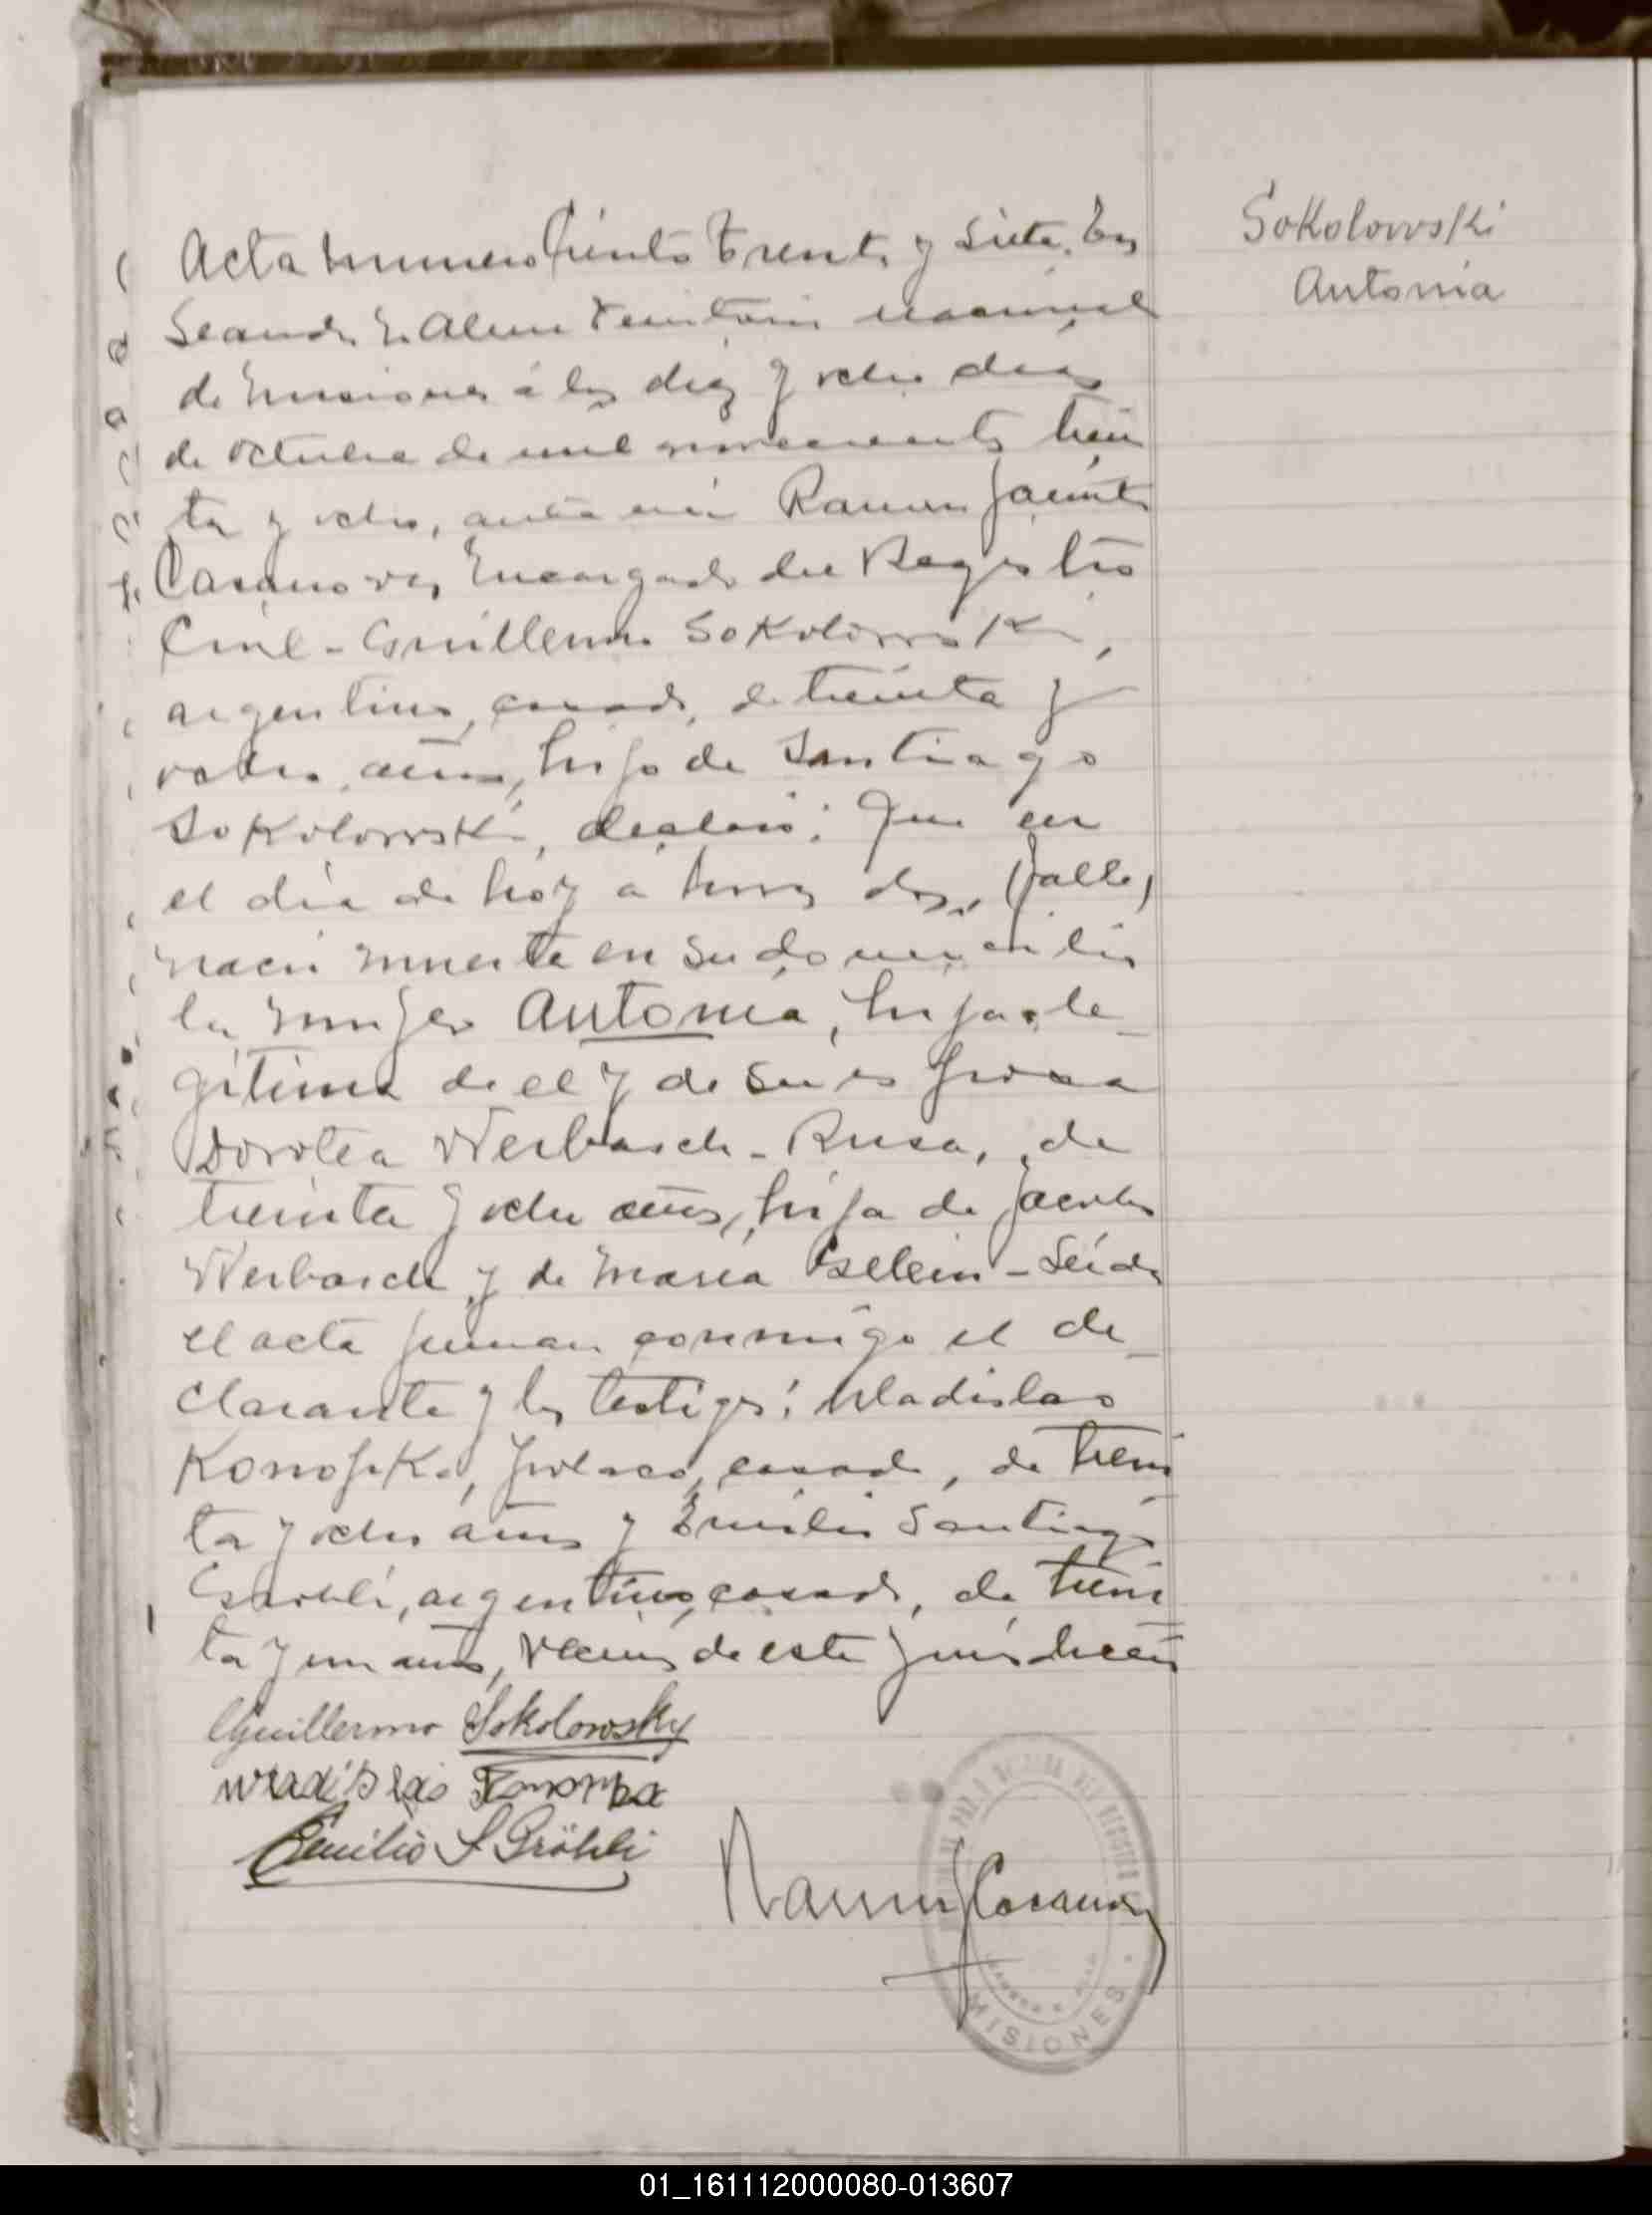 Sokolowski
Antonia
Acta numero Ciento Treinta y Siete. En
Leandro N. Alem Territorio nacional
de Misiones á los diez y ocho dias
de octubre de mil novecientos trein
ta y ocho, ante mi Ramon Jacinto
Casanova, Encargado del Registro
Civil - Guillermo Sokolowski,
argentino, casado, de treinta y
ocho, años, hijo de Santiago
Sokolowski, declaró: Que en
el dia de hoy a horas dos, (falle)
nació muerta en su domicilio
la mujer Antonia, hija le-
gitima de el y de su esposa
Dorotea Werbasch - Rusa, de
treinta y ocho años, hija de Jacobo
Werbasch y de Maria - Leida
el acta firman conmigo el de-
clarante y los testigos: Wladislao
Konopka, polaco, casado, de trein
ta y ocho años y Emilio Santiago
argentino, casado, de trein
ta y un años, vecinos de esta jurisdicción
Guillermo Sokolowsky
Wladislao Konopka
Emilio S Gröhli
Ramon J Casanova
MISIONES
01_161112000080-013607